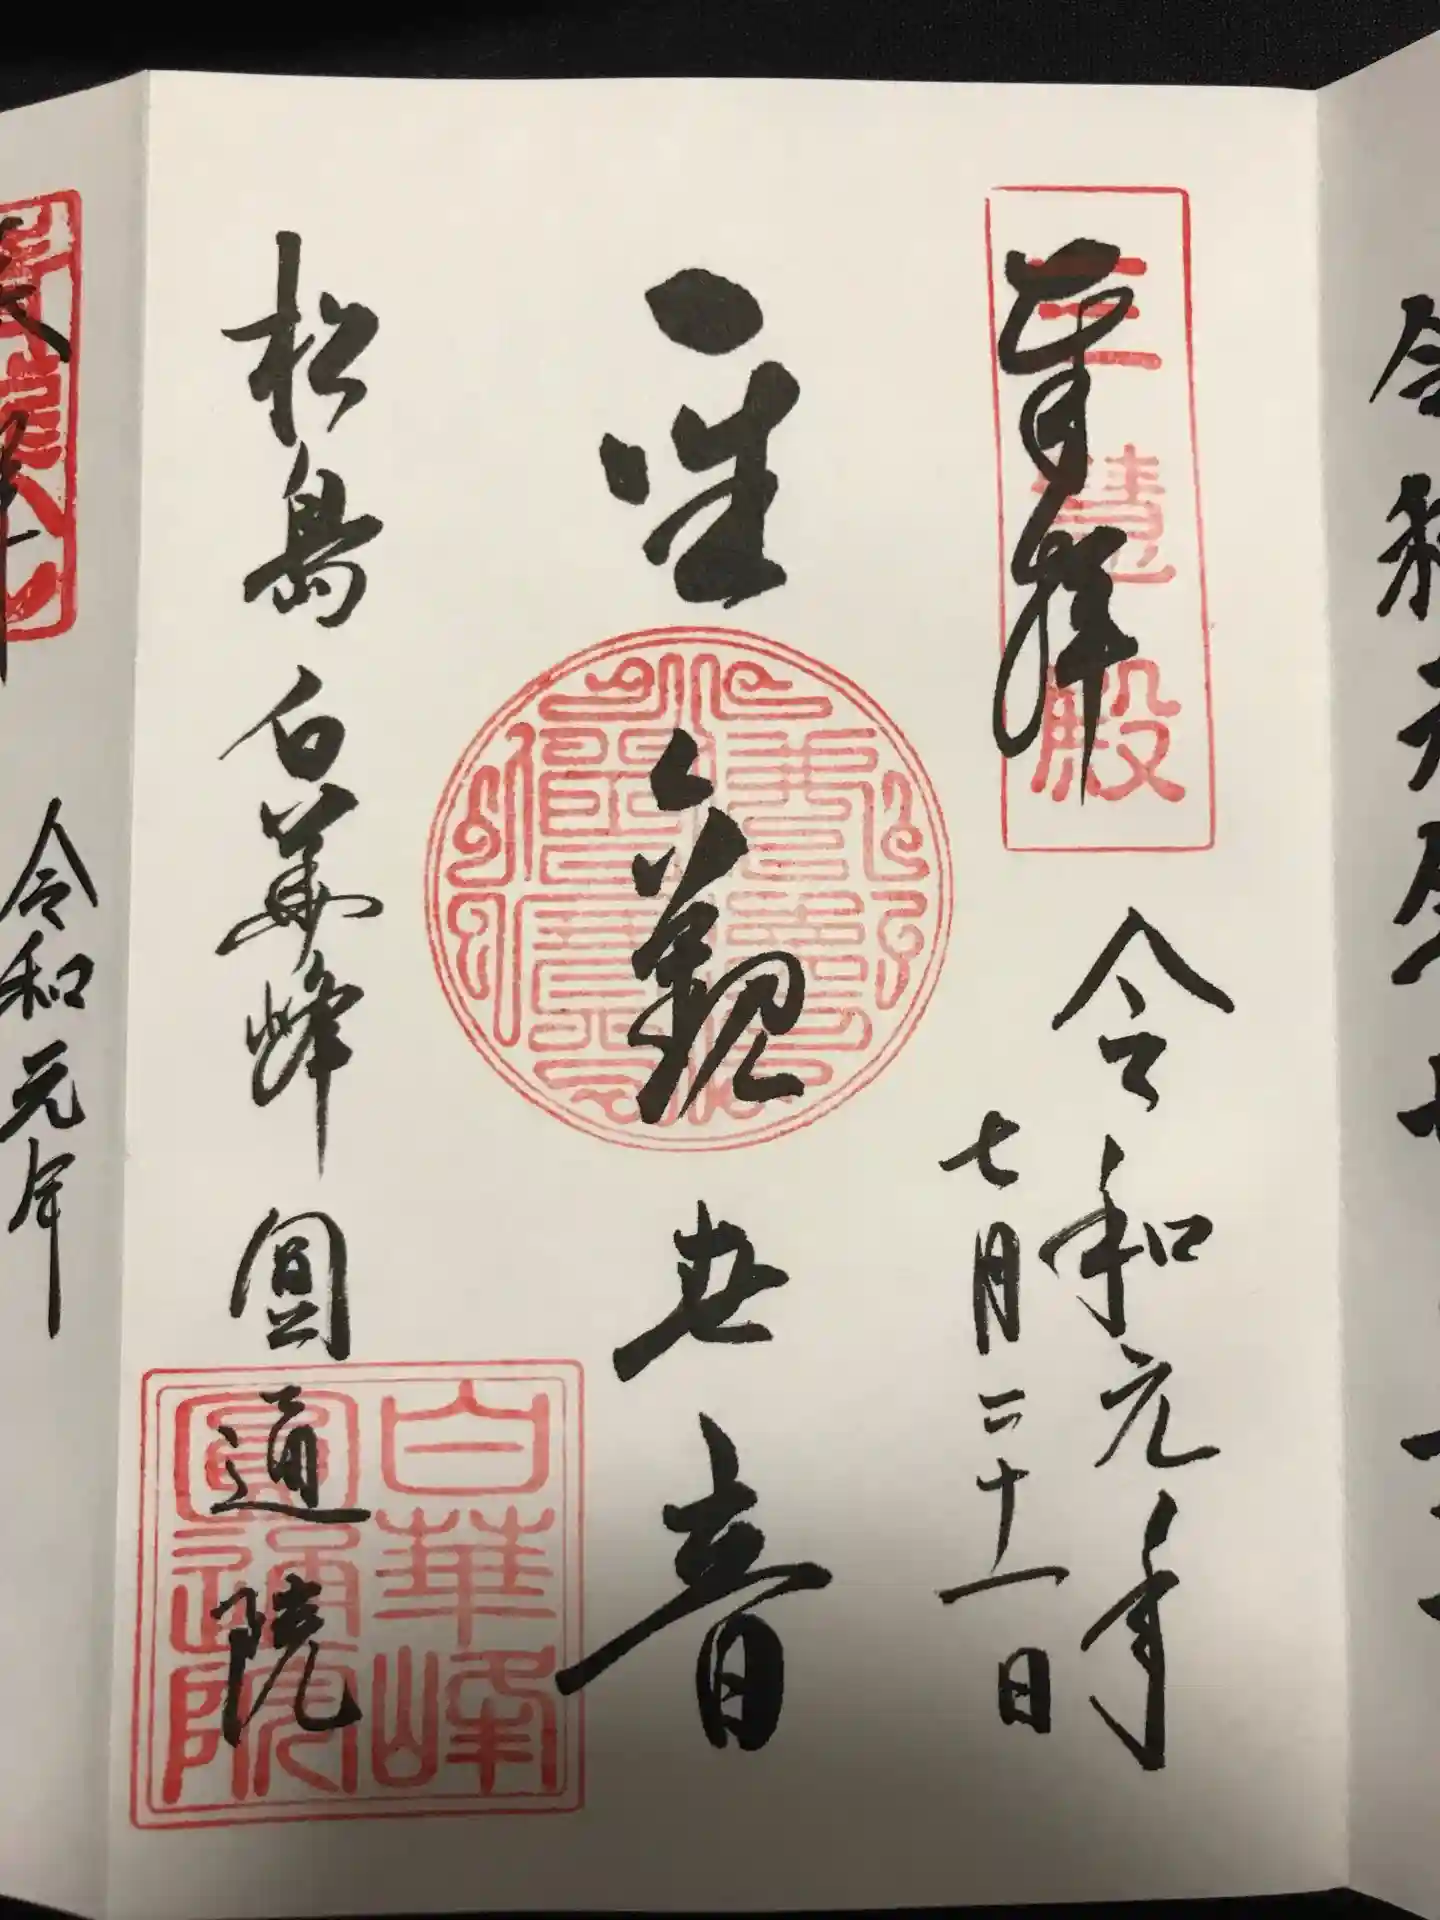 令和元年七
奉拝
三慧殿
令和元年
七月二十一日
聖観世音
松島 白華峰 圓通院
白華峰
圓通院
令和元年